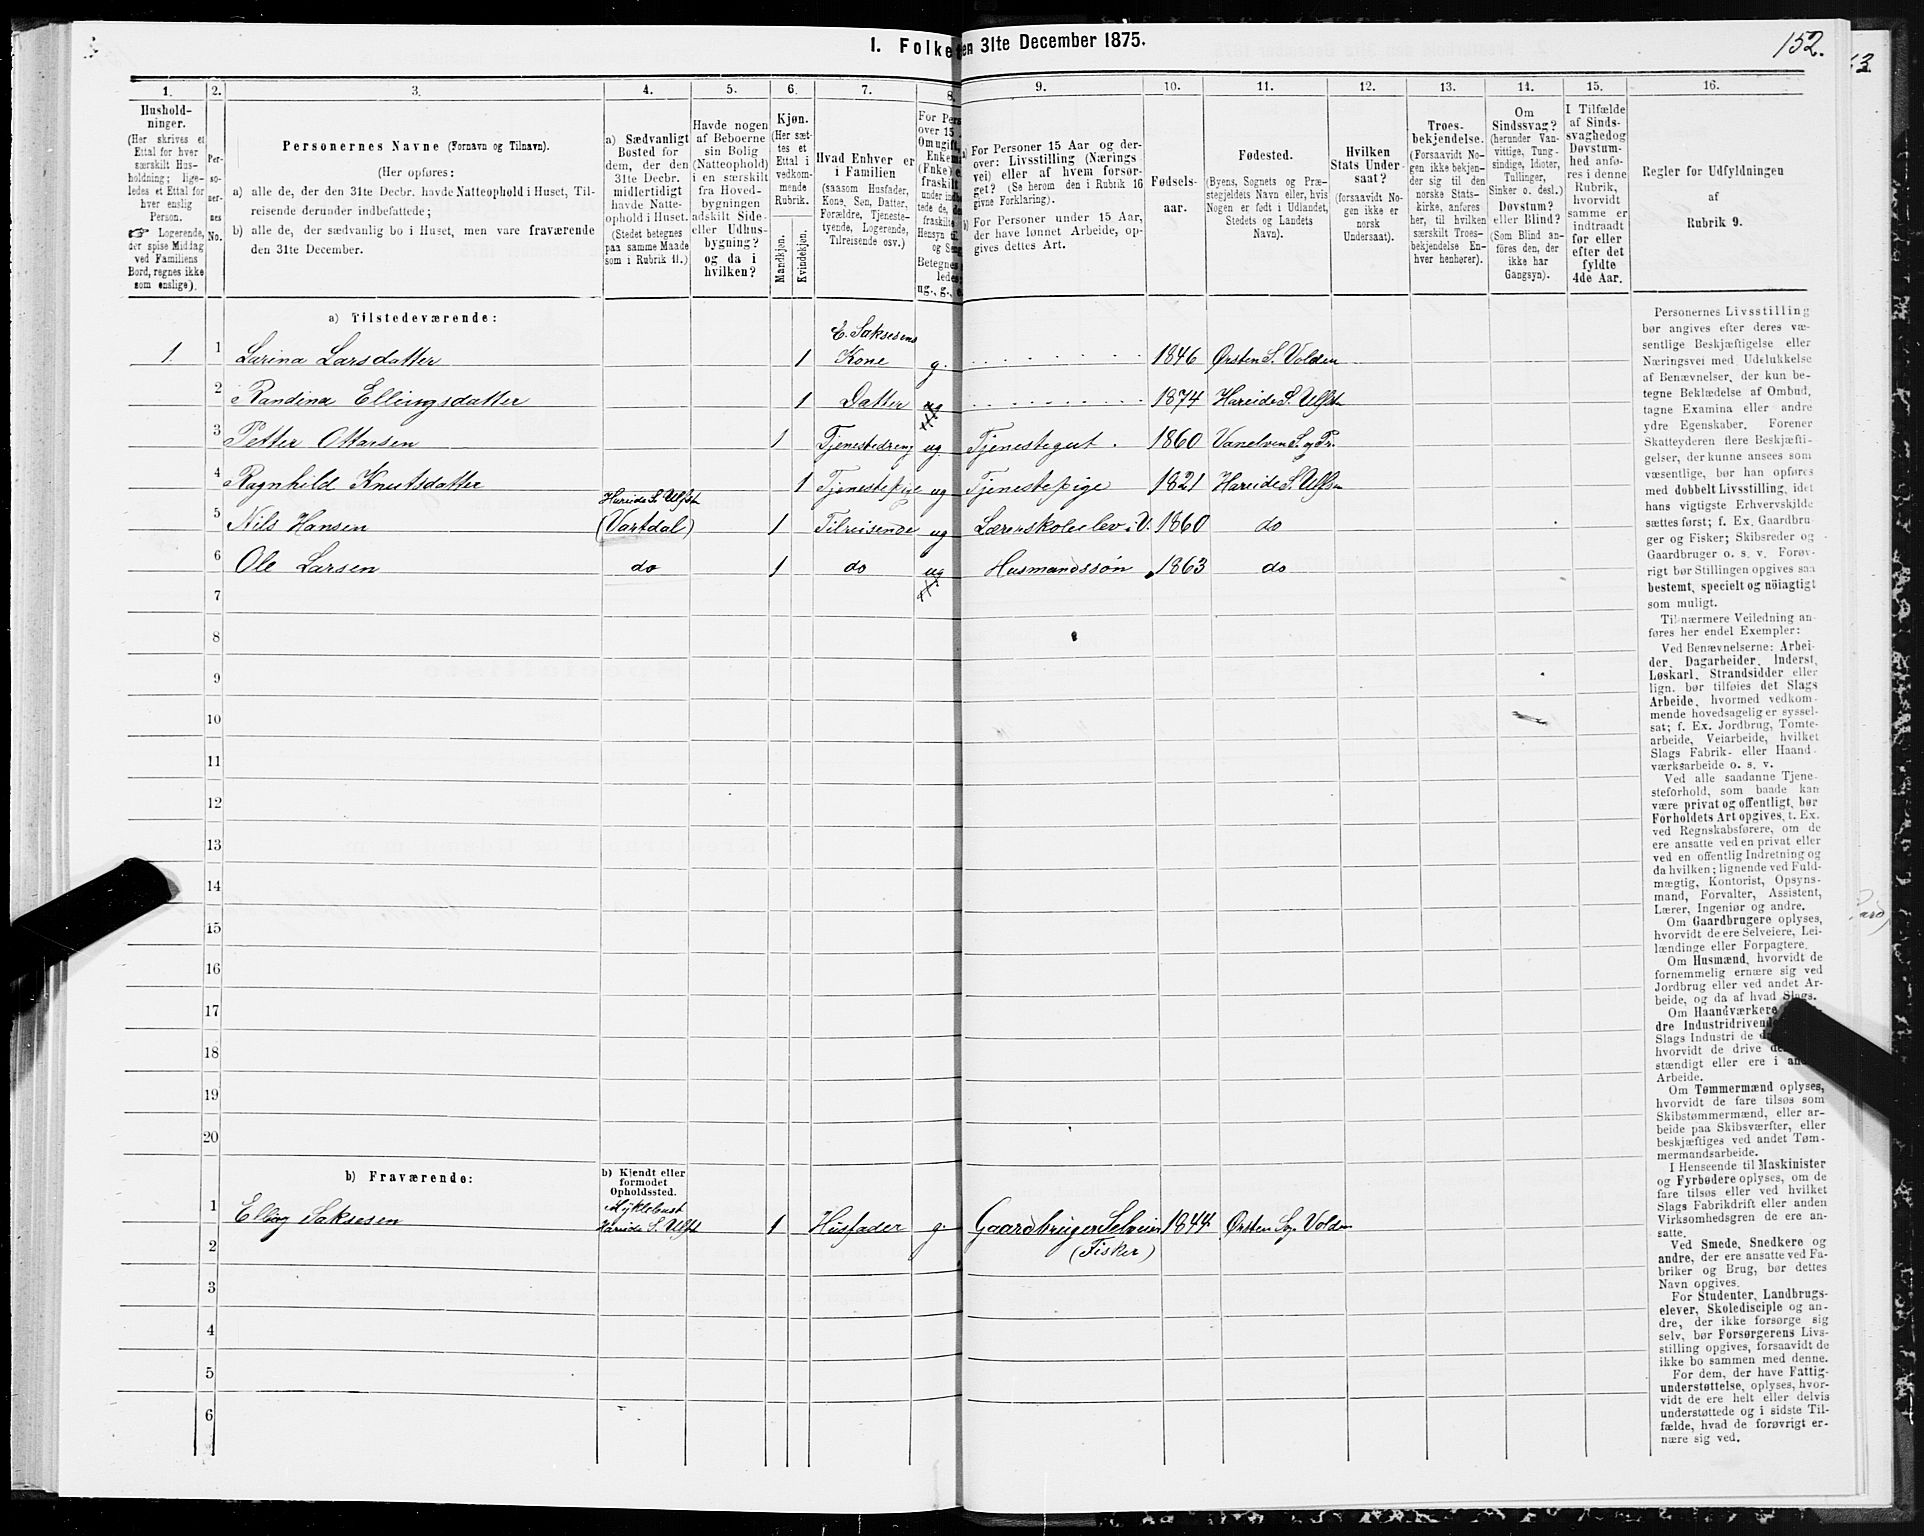 I. Folke en 31te December 1875.
152.
1. 2. 3. 4. 5. 6. 7. 8. 9. 10. 11. 12. 13. 14. 15. 16.
Hushold-
ninger.
(Her skrives et
Ettal for hver
særskilt Hus-
holdning; lige-
ledes et Ettal for
hver enslig
Person.
☞ Logerende,
der spise Middag
ved Familiens
Bord, regnes ikke
som enslige).
Per-
so-
ner-
nes
No.
Personernes Navne (Fornavn og Tilnavn).
(Her opføres:
a) alle de, der den 31te Decbr. havde Natteophold i Huset, Til-
reisende derunder indbefattede;
b) alle de, der sædvanlig bo i Huset, men vare fraværende
den 31te December.
a) Sædvanligt
Bosted for
dem, der den
31te Decbr.
midlertidigt
havde Natte-
ophold i Huset.
(Stedet betegnes
paa samme Maade
som i Rubrik 11.)
Havde nogen
af Beboerne
sin Bolig
(Natteophold)
i en særskilt
fra Hoved-
bygningen
adskilt Side-
eller Udhus-
bygning?
og da i
hvilken?
Kjøn.
(Her sæt-
tes et
Ettal i
vedkom-
mende
Rubrik.
Mandkjøn.
Kvindekjøn.
Hvad Enhver er
i Familien
(saasom Husfader,
Kone, Søn, Datter,
Forældre, Tjeneste-
tyende, Logerende,
Tilreisende osv.)
For Pers
over 15
Om ugift,
Enkem
(Enke) e
fraskilt
under indb
tede de, de
fraskilte
Hensyn ti
og Seng
Betegnes
ledes:
ug., g., e.
a) For Personer 15 Aar og der-
over: Livsstilling (Nærings-
vei) eller af hvem forsør-
get? (Se herom den i Rubrik 16
givne Forklaring).
b) For Personer under 15 Aar,
der have lønnet Arbeide, op-
gives dettes Art.
Fødsels-
aar.
Fødested.
(Byens, Sognets og Præ-
stegjeldets Navn eller, hvis
Nogen er født i Udlandet,
Stedets og Landets
Navn).
Hvilken
Stats Under-
saat?
(forsaavidt No-
gen ikke er
norsk
Undersaat).
Troes-
bekjendelse.
(Forsaavidt No-
gen ikke bekjen-
der sig til den
norske Stats-
kirke, anføres
her, til hvilken
særskilt Troes-
bekjendelse En-
hver henhører).
Om
Sindssvag?
(herunder Van-
vittige, Tung-
sindige, Idioter,
Tullinger,
Sinker o. desl.)
Døvstum?
eller Blind?
(Som Blind an-
føres den, der
ikke har
Gangsyn).
I Tilfælde
af Sinds-
svaghed og
Døvstum-
hed anfø-
res i denne
Rubrik,
hvorvidt
samme er
indtraadt
før eller
efter det
fyldte
4de Aar.
Regler for Udfyldningen
af
Rubrik 9.
a) Tilstedeværende:
E. Saksesens
1 1 Larina Larsdatter 1 Kone g. 1846 Ørsten S. Volden
2 Randina Ellingsdatter 1 Datter ug 1874 Hareide S. Ulfsten
3 Petter Ottesen 1 Tjenestedreng ug Tjenestegut. 1860 Vanelven S. og Pr.
4 Ragnhild Knutsdatter 1 Tjenestepige ug Tjenestepige 1821 Hareide S. Ulfsten
Hareide S. Ulfsten
5 Nils Hansen (Vartdal) 1 Tilreisende ug Lærerskoleelev i V. 1860 do
6 Ole Larsen do 1 do ug Husmandssøn 1863 do
7
8
9
10
11
12
13
14
15
16
17
18
19
20
b) Fraværende:
b) Kjendt eller
formodet
Opholdssted.
Myklebust
1 Elling Saksesen Hareide S. Ulfst 1 Husfader g. Gaardbruger Selveier 1844 Ørsten Sog. Volden
(Fisker)
2
3
4
5
6
Personernes Livsstilling
bør angives efter deres væ-
sentlige Beskjæftigelse eller
Næringsvei med Udelukkelse
af Benævnelser, der kun be-
tegne Beklædelse af Ombud,
tagne Examina eller andre
ydre Egenskaber. Forener
Skatteyderen flere Beskjæfti-
gelser, der kunne ansees som
væsentlige, bør han opføres
med dobbelt Livsstilling, idet
hans vigtigste Erhvervskilde
sættes først; f. Ex. Gaardbru-
ger og Fisker; Skibsreder og
Gaardbruger o. s. v. Forøv-
rigt bør Stillingen opgives saa
bestemt, specielt og nöiagtigt
som muligt.
Til nærmere Veiledning an-
føres her endel Exempler:
Ved Benævnelserne: Arbei-
der, Dagarbeider, Inderst,
Løskarl, Strandsidder eller
lign. bør tilføies det Slags
Arbeide, hvormed vedkom-
mende hovedsagelig er syssel-
sat; f. Ex. Jordbrug, Tomte-
arbeide, Veiarbeide, hvilket
Slags Fabrik- eller Haand
værksarbeide o. s. v.
Ved alle saadanne Tjene-
steforhold, som baade kan
være privat og offentligt, bør
Forholdets Art opgives, t. Ex.
ved Regnskabsførere, om de
ere ansatte ved en privat eller
ved en offentlig Indretning og
da hvilken; lignende ved Fuld-
mægtig, Kontorist, Opsyns-
mand, Forvalter, Assistent,
Lærer, Ingeniør og andre.
Om Gaardbrugere oplyses,
hvorvidt de ere Selveiere, Lei-
lændinge eller Forpagtere.
Om Husmænd, hvorvidt de
fornemmelig ernære sig ved
Jordbrug eller ved andet Ar-
beide, og da af hvad Slags.
Om Haandværkere
dre Industridrivende
Slags Industri de d
hvorvidt de drive de
stændigt eller ere i an
Arbeide.
Om Tømmermænd oplyses,
hvorvidt de fare tilsøs som
Skibstømmermænd, eller ar-
beide paa Skibsværfter, eller
beskjæftiges ved andet Tøm-
mermandsarbeide.
I Henseende til Maskinister
og Fyrbødere oplyses, om de
fare tilsøs eller ved hvilket
Slags Fabrikdrift eller anden
Virksomhedsgren de ere an-
satte.
Ved Smede, Snedkere og
andre, der ere ansatte ved Fa-
briker og Brug, bør dettes
Navn opgives.
For Studenter, Landbrugs-
elever, Skoledisciple og an-
dre, der ikke forsørge sig
selv, bør Forsørgerens Livs-
stilling opgives, forsaavidt de
ikke bo sammen med denne.
For dem, der have Fattig-
understøttelse, oplyses, hvor-
vidt de ere helt eller delvis
understøttede og i sidste Til-
fælde, hvad de forøvrigt er-
nære sig ved.